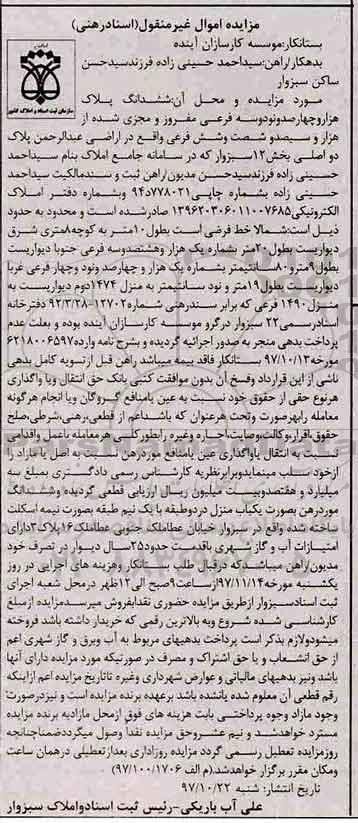 مزایده اموال غیرمنقول(اسنادرهنی)
بستانکار:موسسه کارسازان آینده
بدهکار/راهن:سیداحمد حسینی زاده فرزندسیدحسن
ساکن سبزوار
مورد مزایده و محل آن:ششدانگ پلاک
هزاروچهارصدونودوسه فرعی مفروز و مجزی شده از
هزار و سیصدو شصت وشش فرعی واقع در اراضی عبدالرحمن پلاک
دو اصلی بخش۱۲سبزوار که در سامانه جامع املاک بنام سیداحمد
حسینی زاده فرزندسیدحسن مدیون/راهن ثبت و سندمالکیت سیداحمد
حسینی زاده بشماره چاپی۷۷۸۰۲۱د۹۴ وبشماره دفتر املاک
الکترونیکی۱۳۹۶۲۰۳۰۶۰۱۱۰۰۷۶۸۵ صادرشده است و محدود به حدود
ذیل است:شمالا خط فرضی است بطول۱۰متر به کوچه۸متری شرق
دیواریست بطول۲۰متر بشماره یک هزار وهشتصدوسه فرعی جنوبا دیواریست
بطول۹مترو۸۰سانتیمتر بشماره یک هزار و چهارصد ونود وچهار فرعی غربا
دیواریست بطول۱۹متر و نود سانتیمتر به منزل ۱۴۷۴دوم دیواریست به
منزل۱۴۹۰ فرعی که برابر سندرهنی شماره۱۲۷۰۲-۹۲/۳/۲۸ دفترخانه
اسنادرسمی۲۲ سبزوار درگرو موسسه کارسازان آینده بوده و بعلت عدم
پرداخت بدهی منجر به صدور اجرائیه گردیده و بشرح نامه وارده۶۲۱۸۰۰۶۵۹۷
مورخه۹۷/۱۰/۱۳ بستانکار فاقد بیمه میباشد راهن قبل ازتسویه کامل بدهی
ناشی از این قرارداد وفسخ آن بدون موافقت کتبی بانک حق انتقال ویا واگذاری
هرنوع حقی از حقوق خود نسبت به عین یامنافع گروگان ویا انجام هرگونه
معامله رابهرصورت وتحت هرعنوان که باشداعم از قطعی،رهنی،شرطی،صلح
حقوق،اقرار،وکالت،وصایت،اجاره وغیره رابطورکلی هرمعامله یاعمل واقدامی
نسبت به انتقال یاواگذاری عین یامنافع موردرهن نسبت به اصل یا مازاد را
ازخود سلب مینمایدوبرابرنظریه کارشناس رسمی دادگستری بمبلغ سه
میلیارد و هفتصدوبیست میلیون ریال ارزیابی قطعی گردیده وششدانگ
موردرهن بصورت یکباب منزل دردوطبقه با یک نیم طبقه بصورت نیمه اسکلت
ساخته شده واقع در سبزوار خیابان عطاملک جنوبی عطاملک۱۶پلاک۳دارای
امتیازات آب و گاز شهری باقدمت حدود۲۵سال دیوار در تصرف خود
مدیون/راهن میباشدکه درقبال طلب بستانکار وهزینه های اجرایی در روز
یکشنبه مورخه۹۷/۱۱/۱۴ازساعت۹صبح الی۱۲ظهر درمحل شعبه اجرای
ثبت اسنادسبزوار ازطریق مزایده حضوری نقدابفروش میرسدمزایده ازمبلغ
کارشناسی شده شروع وبه بالاترین رقمی که خریدار داشته باشد فروخته
میشودولازم بذکر است پرداخت بدهیهای مربوط به آب وبرق و گاز شهری اعم
از حق انشعاب و یا حق اشتراک و مصرف در صورتیکه مورد مزایده دارای آنها
باشد ونیز بدهیهای مالیاتی و عوارض شهرداری وغیره تاتاریخ مزایده اعم ازاینکه
رقم قطعی آن معلوم شده یانشده باشد برعهده برنده مزایده است و نیزدرصورت
وجود مازاد وجوه پرداختی بابت هزینه های فوق ازمحل مازادبه برنده مزایده
مسترد خواهدشد و نیم عشروحق مزایده نقدا وصول میگرددضمناچنانچه
روزمزایده تعطیل رسمی گردد مزایده روزاداری بعدازتعطیلی درهمان ساعت
ومکان مقرر برگزار خواهدشد.(م الف ۹۷/۱۰۰/۱۷۰۶)
تاریخ انتشار: شنبه ۹۷/۱۰/۲۲
علی آب باریکی-رئیس ثبت اسنادواملاک سبزوار
سازمان ثبت اسناد و املاک کشور